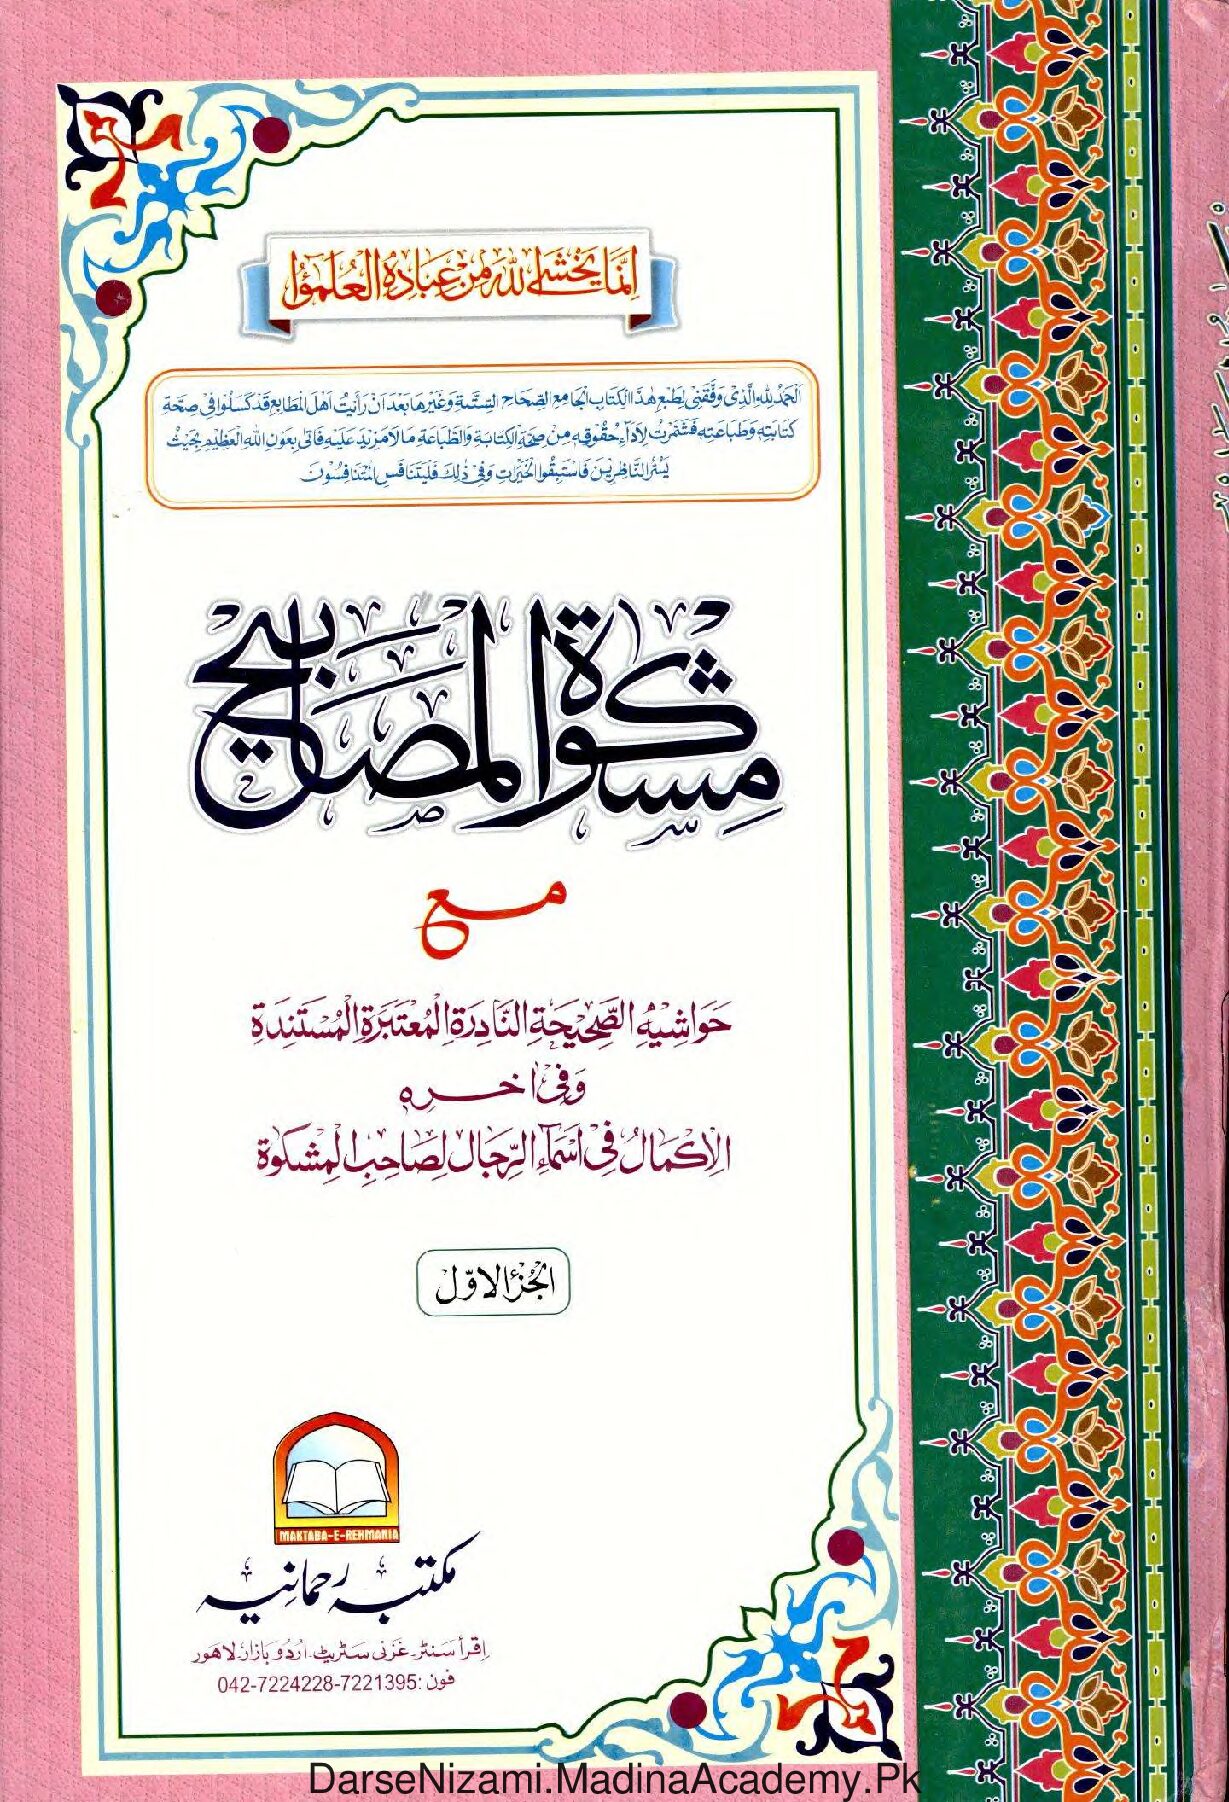 اِنَّمَا يَخْشَى اللهَ مِنْ عِبَادِهِ الْعُلَمٰٓؤُا
اَلْحَمْدُ لِلّٰهِ الَّذِیْ وَفَّقَنِیْ لِطَبْعِ هٰذَا الْكِتَابِ الْجَامِعِ الصِّحَاحِ السِّتَّةِ وَغَيْرِهَا بَعْدَ اَنْ رَأَيْتُ اَهْلَ الْمَطَابِعِ قَدْ كَسَلُوْا فِیْ صِحَّةِ
كِتَابَتِهٖ وَطَبَاعَتِهٖ فَشَمَّرْتُ لِاَدَآءِ حُقُوْقِهٖ مِنْ صِحَّةِ الْكِتَابَةِ وَالطَّبَاعَةِ مَا لَا مَزِيْدَ عَلَيْهِ فَاَتٰی بِعَوْنِ اللهِ الْعَظِيْمِ بِحَيْثُ
يَسُرُّ النَّاظِرِيْنَ فَاسْتَبِقُوا الْخَيْرٰتِ وَفِیْ ذٰلِكَ فَلْيَتَنَافَسِ الْمُتَنَافِسُوْنَ
مِشْكٰوةُ الْمَصَابِيْحِ
مع
حَوَاشِيْهِ الصَّحِيْحَةِ النَّادِرَةِ الْمُعْتَبَرَةِ الْمُسْتَنِدَةِ
وَفِیْ اٰخِرِهٖ
الْاِكْمَالُ فِیْ اَسْمَآءِ الرِّجَالِ لِصَاحِبِ الْمِشْكٰوةِ
الجُزْءُ الاَوّل
MAKTABA-E-REHMANIA
مکتبہ رحمانیہ
اِقرأ سَنٹر غَزنی سٹریٹ اُردُو بازار لاہور
فون: 042-7224228-7221395
DarseNizami.MadinaAcademy.Pk